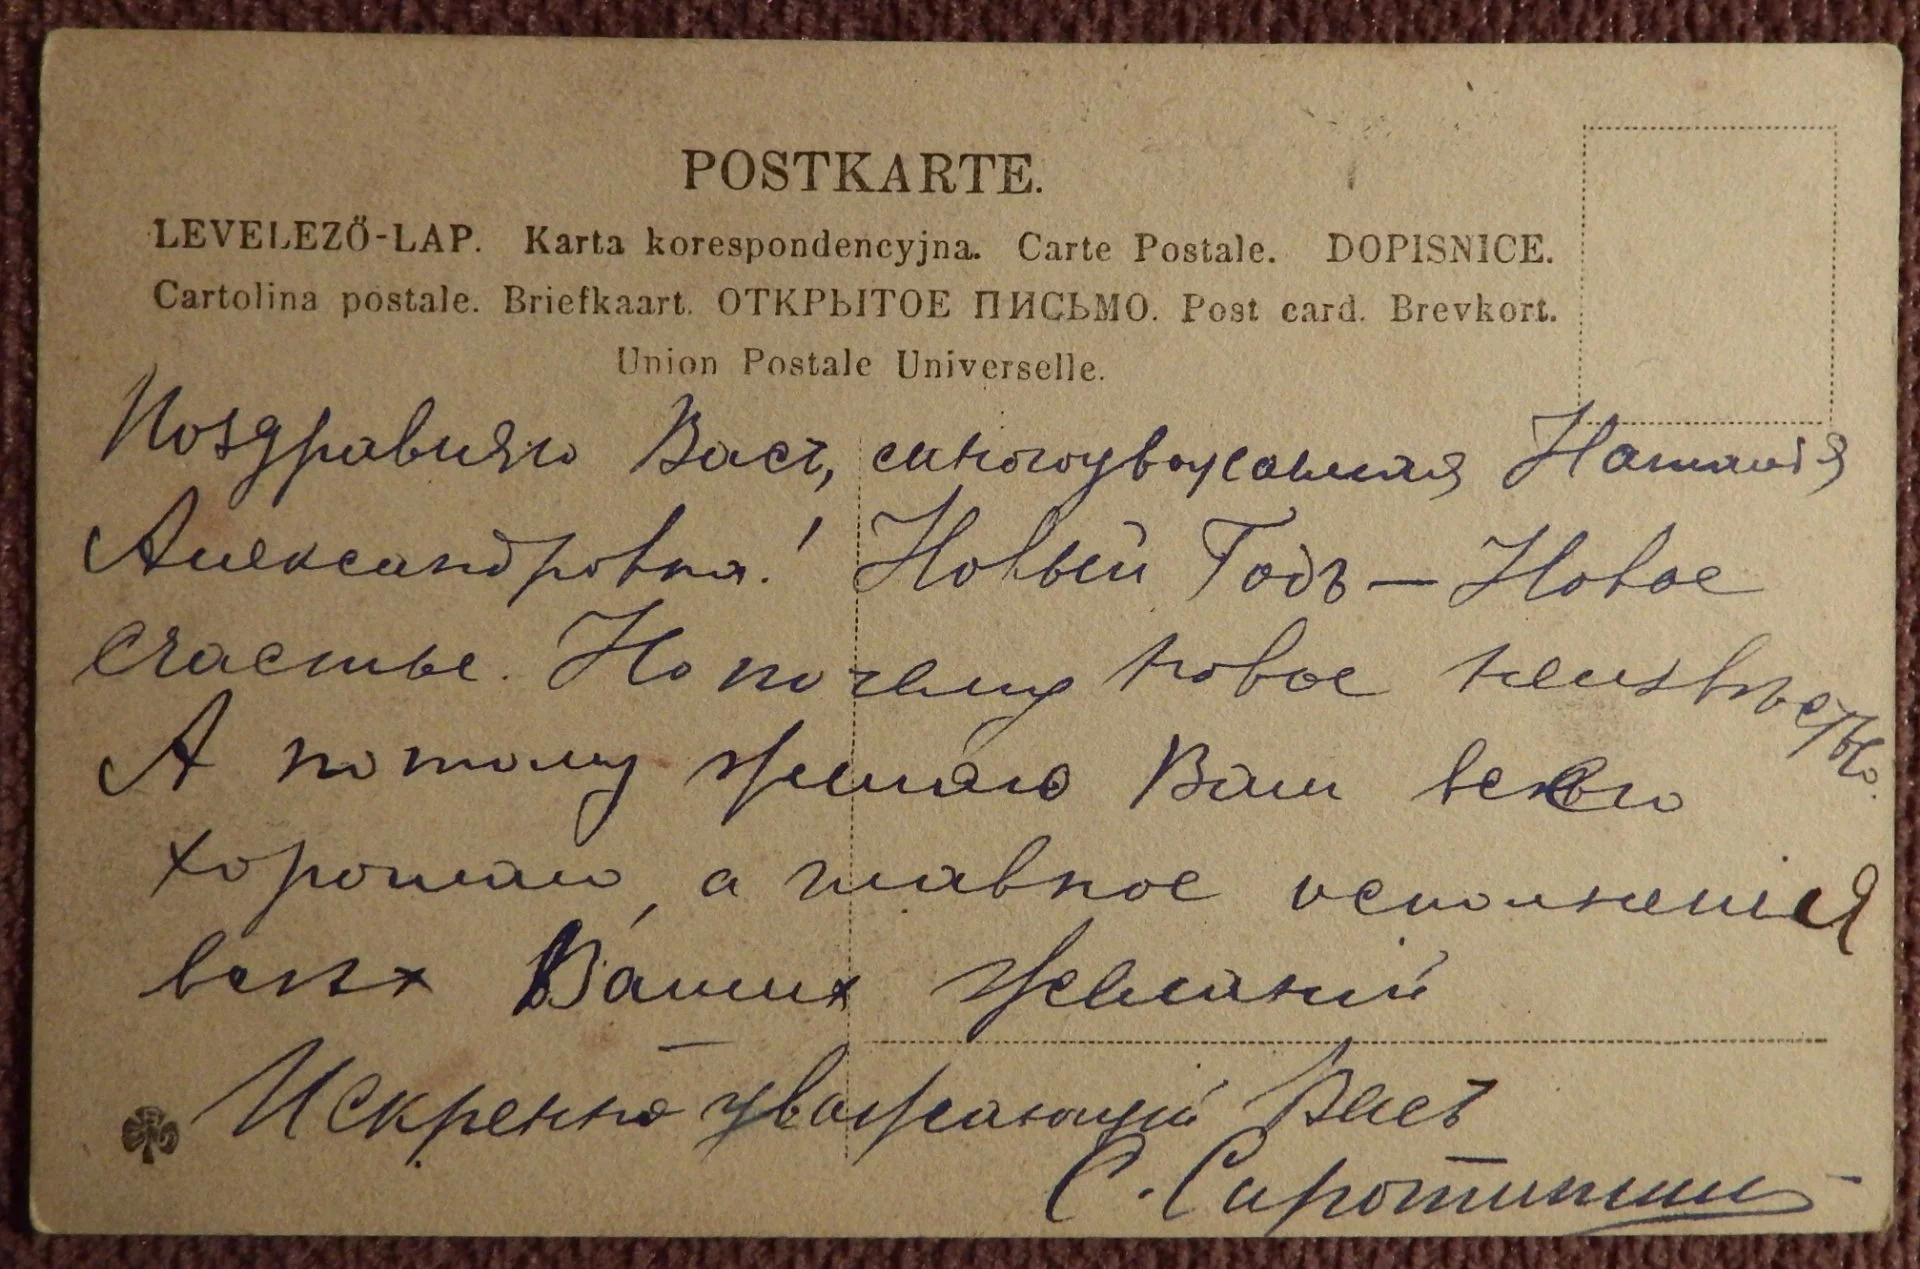 POSTKARTE.
LEVELEZŐ-LAP. Karta korespondencyjna. Carte Postale. DOPISNICE.
Cartolina postale. Briefkaart. ОТКРЫТОЕ ПИСЬМО. Post card. Brevkort.
Union Postale Universelle.
Поздравляю Васъ, многоуважаемая Наталія
Александровна! Новый Годъ — Новое
счастье. Но почему новое неизвѣстно.
А потому желаю Вам всего
хорошаго, а главное исполненія
всѣх Ваших желаний
Искренно уважающий Васъ
С.